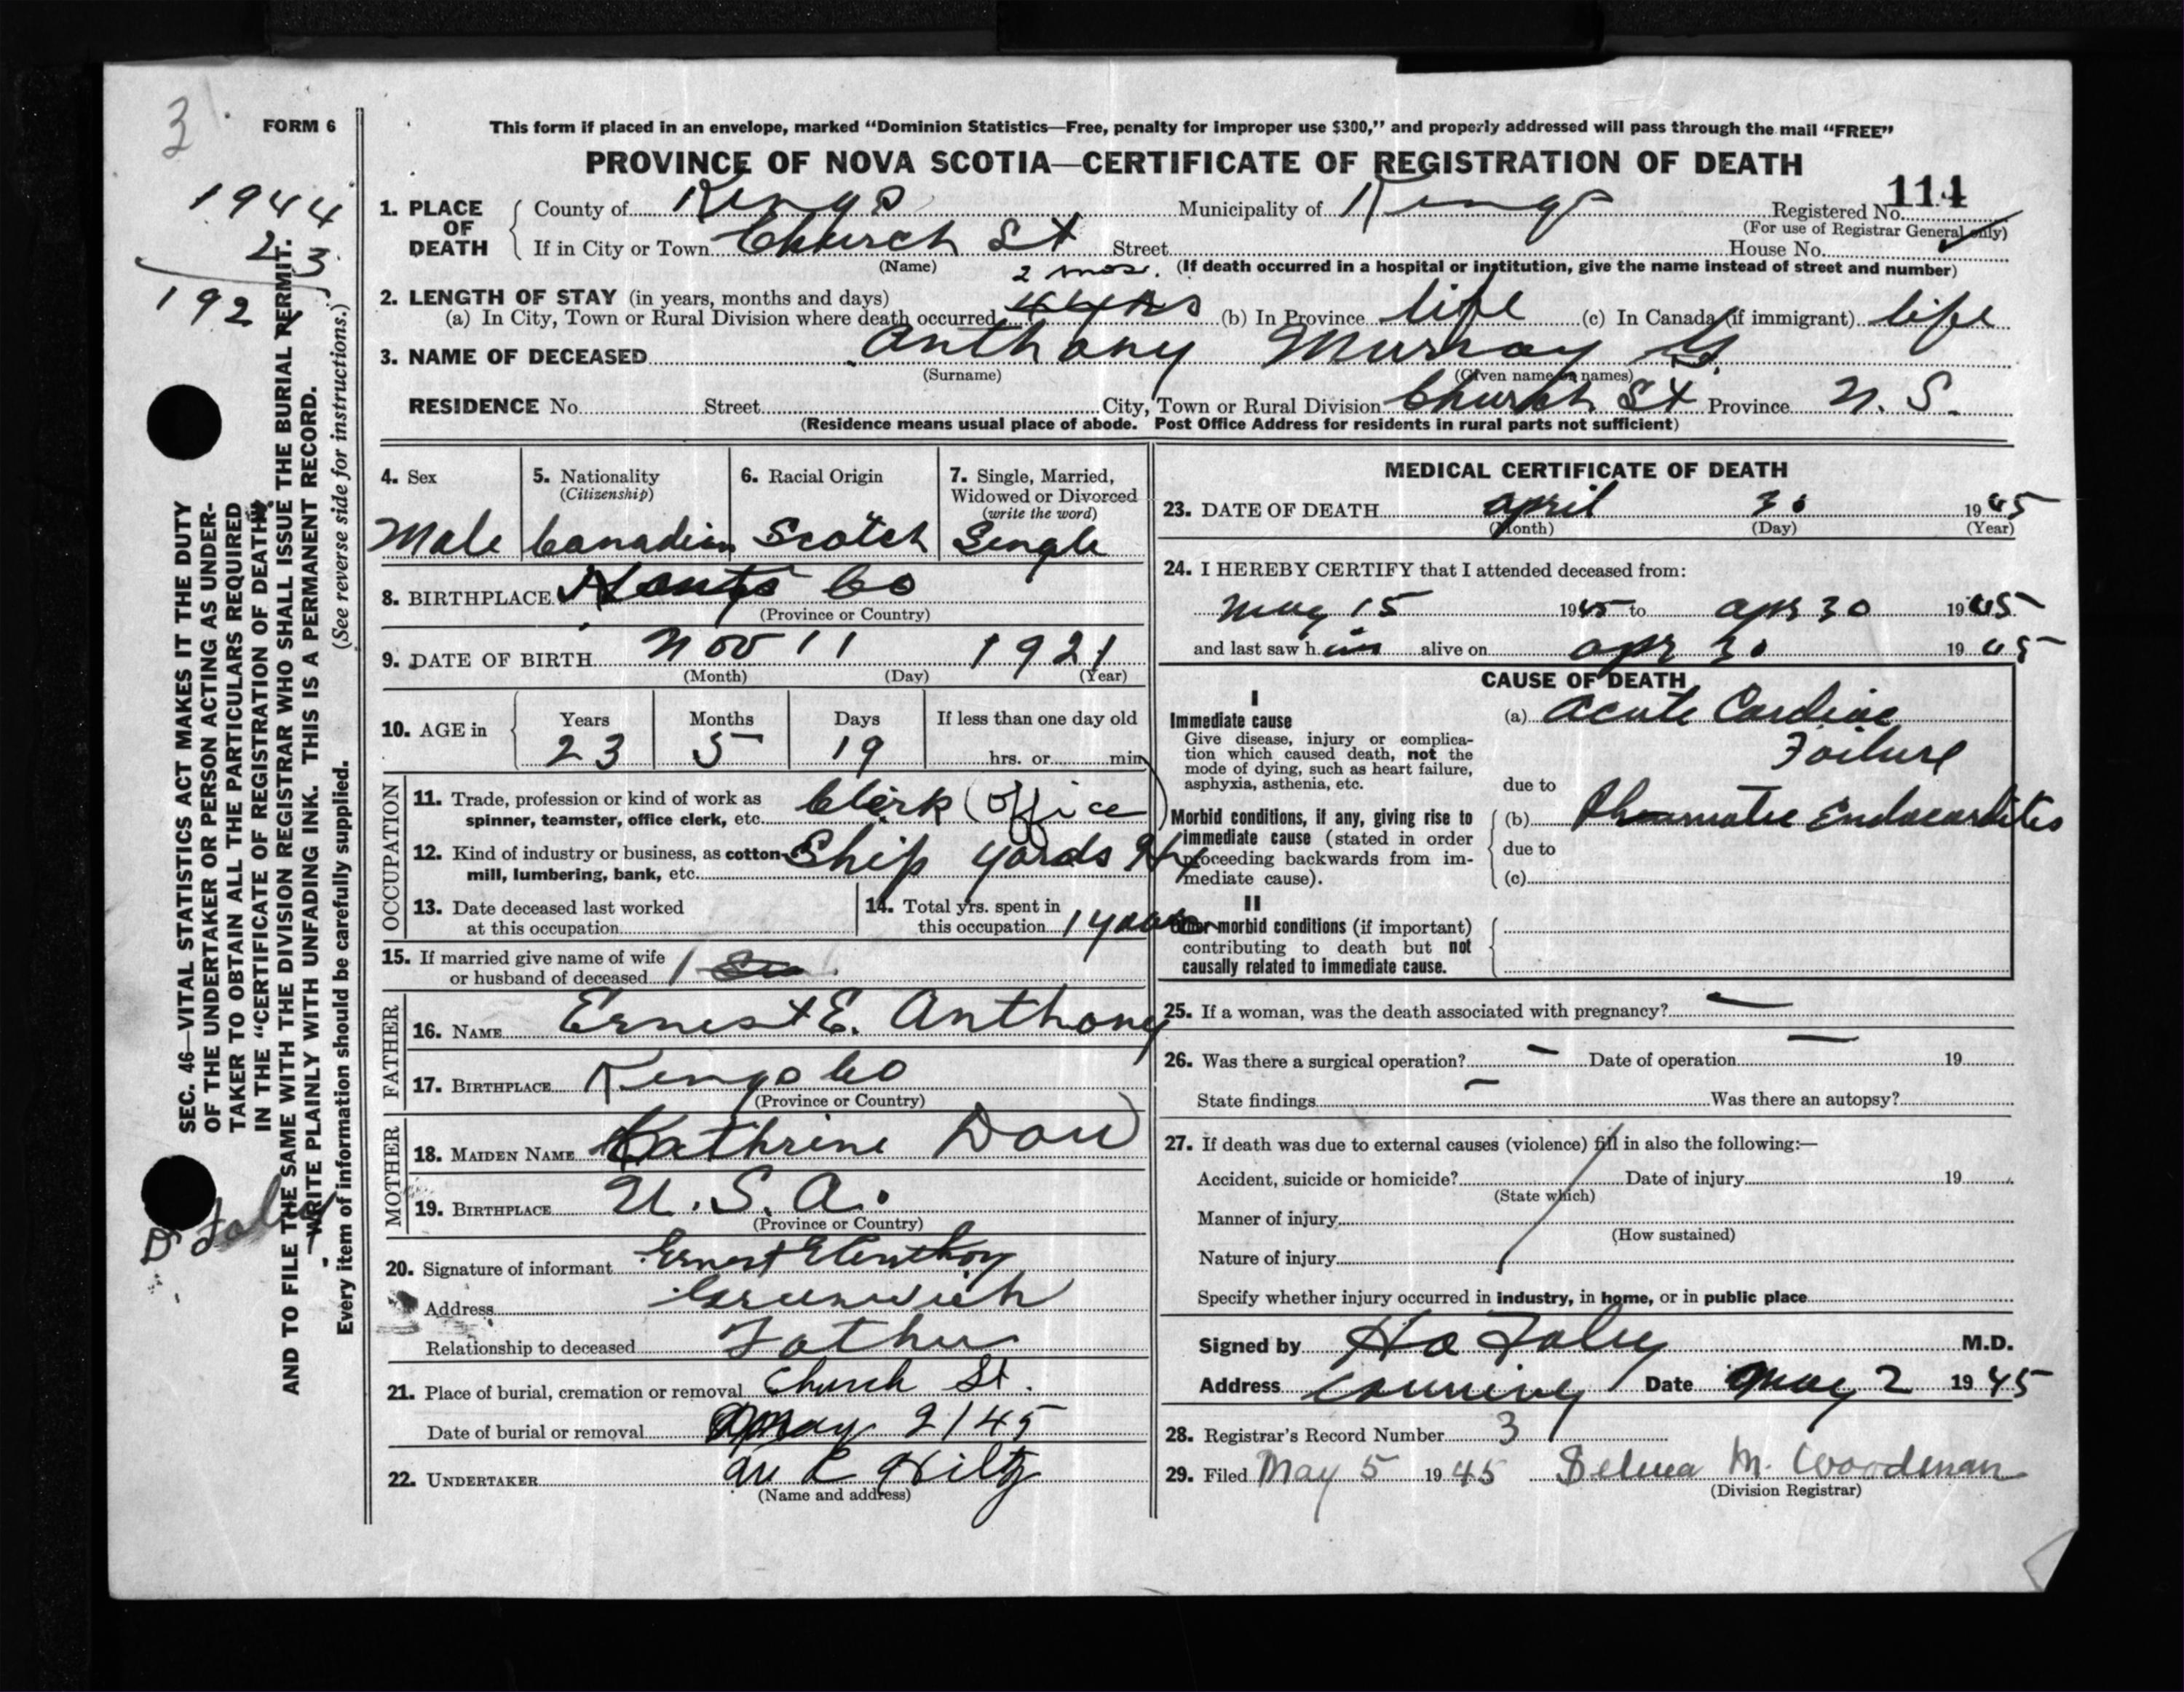 3
FORM 6
This form if placed in an envelope, marked “Dominion Statistics—Free, penalty for improper use $300,” and properly addressed will pass through the mail “FREE”
PROVINCE OF NOVA SCOTIA—CERTIFICATE OF REGISTRATION OF DEATH
1944
23
192
SEC. 46—VITAL STATISTICS ACT MAKES IT THE DUTY
OF THE UNDERTAKER OR PERSON ACTING AS UNDER-
TAKER TO OBTAIN ALL THE PARTICULARS REQUIRED
IN THE “CERTIFICATE OF REGISTRATION OF DEATH”
AND TO FILE THE SAME WITH THE DIVISION REGISTRAR WHO SHALL ISSUE THE BURIAL PERMIT.
WRITE PLAINLY WITH UNFADING INK. THIS IS A PERMANENT RECORD.
Every item of information should be carefully supplied. (See reverse side for instructions.)
Dr
1. PLACE OF DEATH County of Kings Municipality of Kings Registered No. 114
(For use of Registrar General only)
If in City or Town Church St Street House No.
(Name) (If death occurred in a hospital or institution, give the name instead of street and number)
2 mos.
2. LENGTH OF STAY (in years, months and days)
(a) In City, Town or Rural Division where death occurred (b) In Province life (c) In Canada (if immigrant) life
3. NAME OF DECEASED Anthony Murray G.
(Surname) (Given name or names)
RESIDENCE No. Street City, Town or Rural Division Church St Province N. S.
(Residence means usual place of abode. Post Office Address for residents in rural parts not sufficient)
4. Sex
Male
5. Nationality
(Citizenship)
Canadian
6. Racial Origin
Scotch
7. Single, Married,
Widowed or Divorced
(write the word)
Single
8. BIRTHPLACE Hants Co
(Province or Country)
9. DATE OF BIRTH Nov 11 1921
(Month) (Day) (Year)
10. AGE in Years Months Days If less than one day old
23 5 19 hrs. or min
OCCUPATION
11. Trade, profession or kind of work as
spinner, teamster, office clerk, etc. Clerk (Office)
12. Kind of industry or business, as cotton
mill, lumbering, bank, etc. Ship yards Hx
13. Date deceased last worked
at this occupation
14. Total yrs. spent in
this occupation 1 year
15. If married give name of wife
or husband of deceased
FATHER
16. NAME Ernest E. Anthony
17. BIRTHPLACE Kings Co
(Province or Country)
MOTHER
18. MAIDEN NAME Kathrine Dow
19. BIRTHPLACE U. S. A.
(Province or Country)
20. Signature of informant Ernest E Anthony
Address Greenwich
Relationship to deceased Father
21. Place of burial, cremation or removal Church St.
Date of burial or removal May 2/45
22. UNDERTAKER Hiltz
(Name and address)
MEDICAL CERTIFICATE OF DEATH
23. DATE OF DEATH April 30 1945
(Month) (Day) (Year)
24. I HEREBY CERTIFY that I attended deceased from:
15 1945 to apr 30 1945
and last saw him alive on apr 30 1945
CAUSE OF DEATH
I
Immediate cause
Give disease, injury or complica-
tion which caused death, not the
mode of dying, such as heart failure,
asphyxia, asthenia, etc.
(a) Acute Cardiac
Failure
due to
Morbid conditions, if any, giving rise to
immediate cause (stated in order
proceeding backwards from im-
mediate cause).
(b) Rheumatic Endocarditis
due to
(c)
II
Other morbid conditions (if important)
contributing to death but not
causally related to immediate cause.
25. If a woman, was the death associated with pregnancy? —
26. Was there a surgical operation? — Date of operation — 19
State findings — Was there an autopsy?
27. If death was due to external causes (violence) fill in also the following:—
Accident, suicide or homicide? Date of injury 19
(State which)
Manner of injury
(How sustained)
Nature of injury
Specify whether injury occurred in industry, in home, or in public place
Signed by M.D.
Address Canning Date May 2 1945
28. Registrar's Record Number 3
29. Filed May 5 1945 M. Woodman
(Division Registrar)